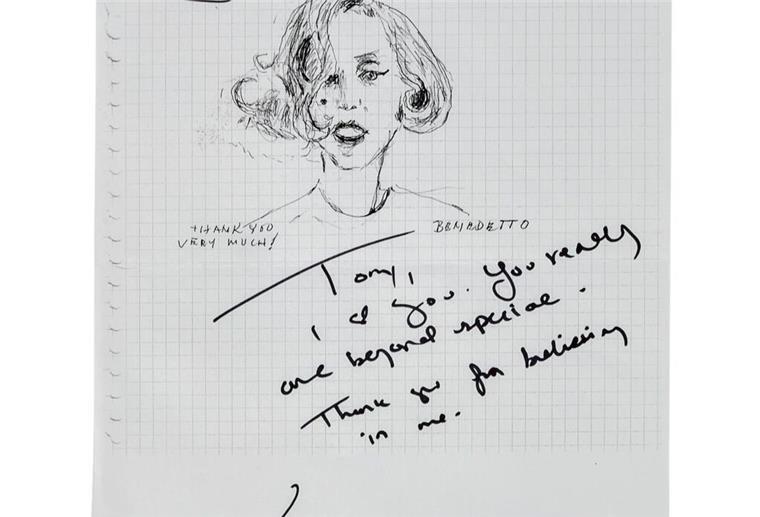 THANK YOU
VERY MUCH!
BENEDETTO
Tony,
I ♡ you. You really
are beyond special.
Thank you for believing
in me.